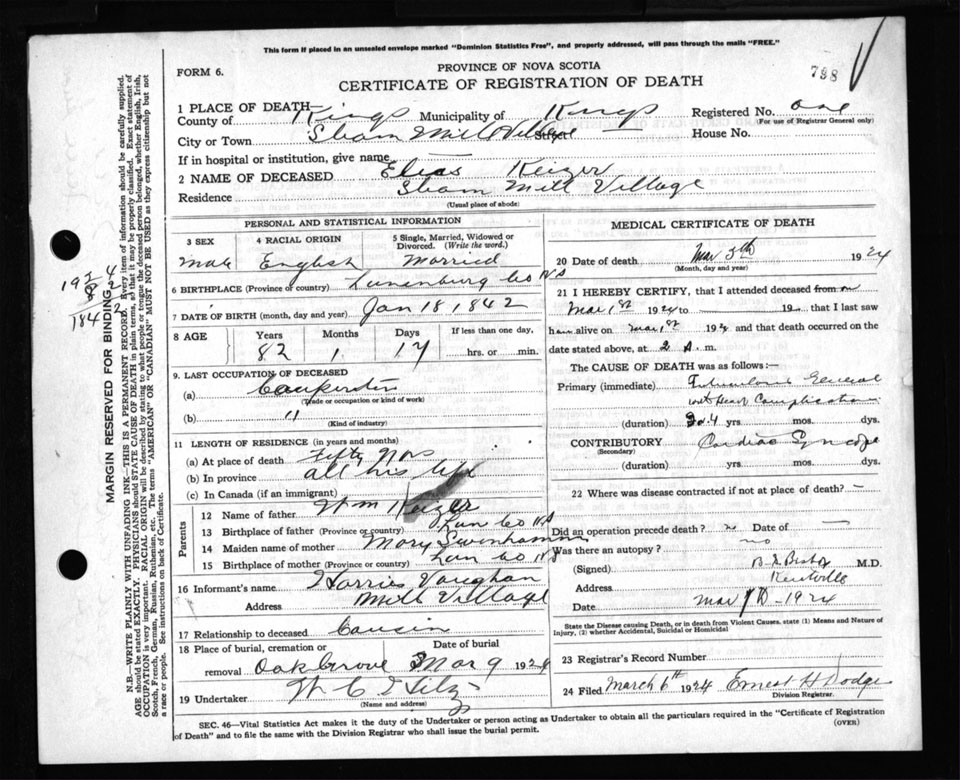 This form if placed in an unsealed envelope marked "Dominion Statistics Free", and properly addressed, will pass through the mails "FREE."
FORM 6.
PROVINCE OF NOVA SCOTIA
798
CERTIFICATE OF REGISTRATION OF DEATH
1 PLACE OF DEATH
County of Kings Municipality of Kings Registered No. one
(For use of Registrar General only)
City or Town Sham Mill Village Street House No.
If in hospital or institution, give name —
2 NAME OF DECEASED Elias Keizer
Residence Sham Mill Village
(Usual place of abode)
PERSONAL AND STATISTICAL INFORMATION
3 SEX 4 RACIAL ORIGIN 5 Single, Married, Widowed or Divorced. (Write the word.)
Male English Married
6 BIRTHPLACE (Province or country) Lunenburg Co NS
7 DATE OF BIRTH (month, day and year) Jan 18 1842
8 AGE Years Months Days If less than one day.
82 1 17 hrs. or min.
9. LAST OCCUPATION OF DECEASED
(a)
(Trade or occupation or kind of work)
(b) "
(Kind of industry)
11 LENGTH OF RESIDENCE (in years and months)
(a) At place of death fifty
(b) In province all his life
(c) In Canada (if an immigrant)
Parents
12 Name of father Wm Keizer
13 Birthplace of father (Province or country) Lun Co NS
14 Maiden name of mother Mary
15 Birthplace of mother (Province or country) Lun Co NS
16 Informant's name Harries Vaughan
Address Mill Village
17 Relationship to deceased Cousin
18 Place of burial, cremation or removal Date of burial
Oak Grove Mar 9 1924
19 Undertaker W C
(Name and address)
MEDICAL CERTIFICATE OF DEATH
20 Date of death Mar 5th 1924
(Month, day and year)
21 I HEREBY CERTIFY, that I attended deceased from on
Mar 1st 1924 to 19
him alive on Mar 1st 1924 and that death occurred on the
date stated above, at 2 A. m.
The CAUSE OF DEATH was as follows:—
Primary (immediate) General
with Heart Complication
(duration) yrs. mos. dys.
CONTRIBUTORY Cardiac Syncope
(Secondary)
(duration) yrs. mos. dys.
22 Where was disease contracted if not at place of death? —
Did an operation precede death? no Date of —
Was there an autopsy? no
(Signed) M.D.
Address Kentville
Date Mar 1924
State the Disease causing Death, or in death from Violent Causes, state (1) Means and Nature of Injury, (2) whether Accidental, Suicidal or Homicidal
23 Registrar's Record Number
24 Filed March 6th 1924 Ernest H Dodge
Division Registrar.
SEC. 46—Vital Statistics Act makes it the duty of the Undertaker or person acting as Undertaker to obtain all the particulars required in the "Certificate of Registration of Death" and to file the same with the Division Registrar who shall issue the burial permit.
(OVER)
MARGIN RESERVED FOR BINDING
N.B.—WRITE PLAINLY WITH UNFADING INK—THIS IS A PERMANENT RECORD. Every item of information should be carefully supplied.
AGE should be stated EXACTLY. PHYSICIANS should STATE CAUSE OF DEATH in plain terms, so that it may be properly classified. Exact statement of
OCCUPATION is very important. RACIAL ORIGIN will be described by stating to what people or race the deceased person belonged, whether English, Irish,
Scotch, French, German, Russian, Ruthenian, etc. The terms "AMERICAN" OR "CANADIAN" MUST NOT BE USED as they express citizenship but not
a race or people. See instructions on back of Certificate.